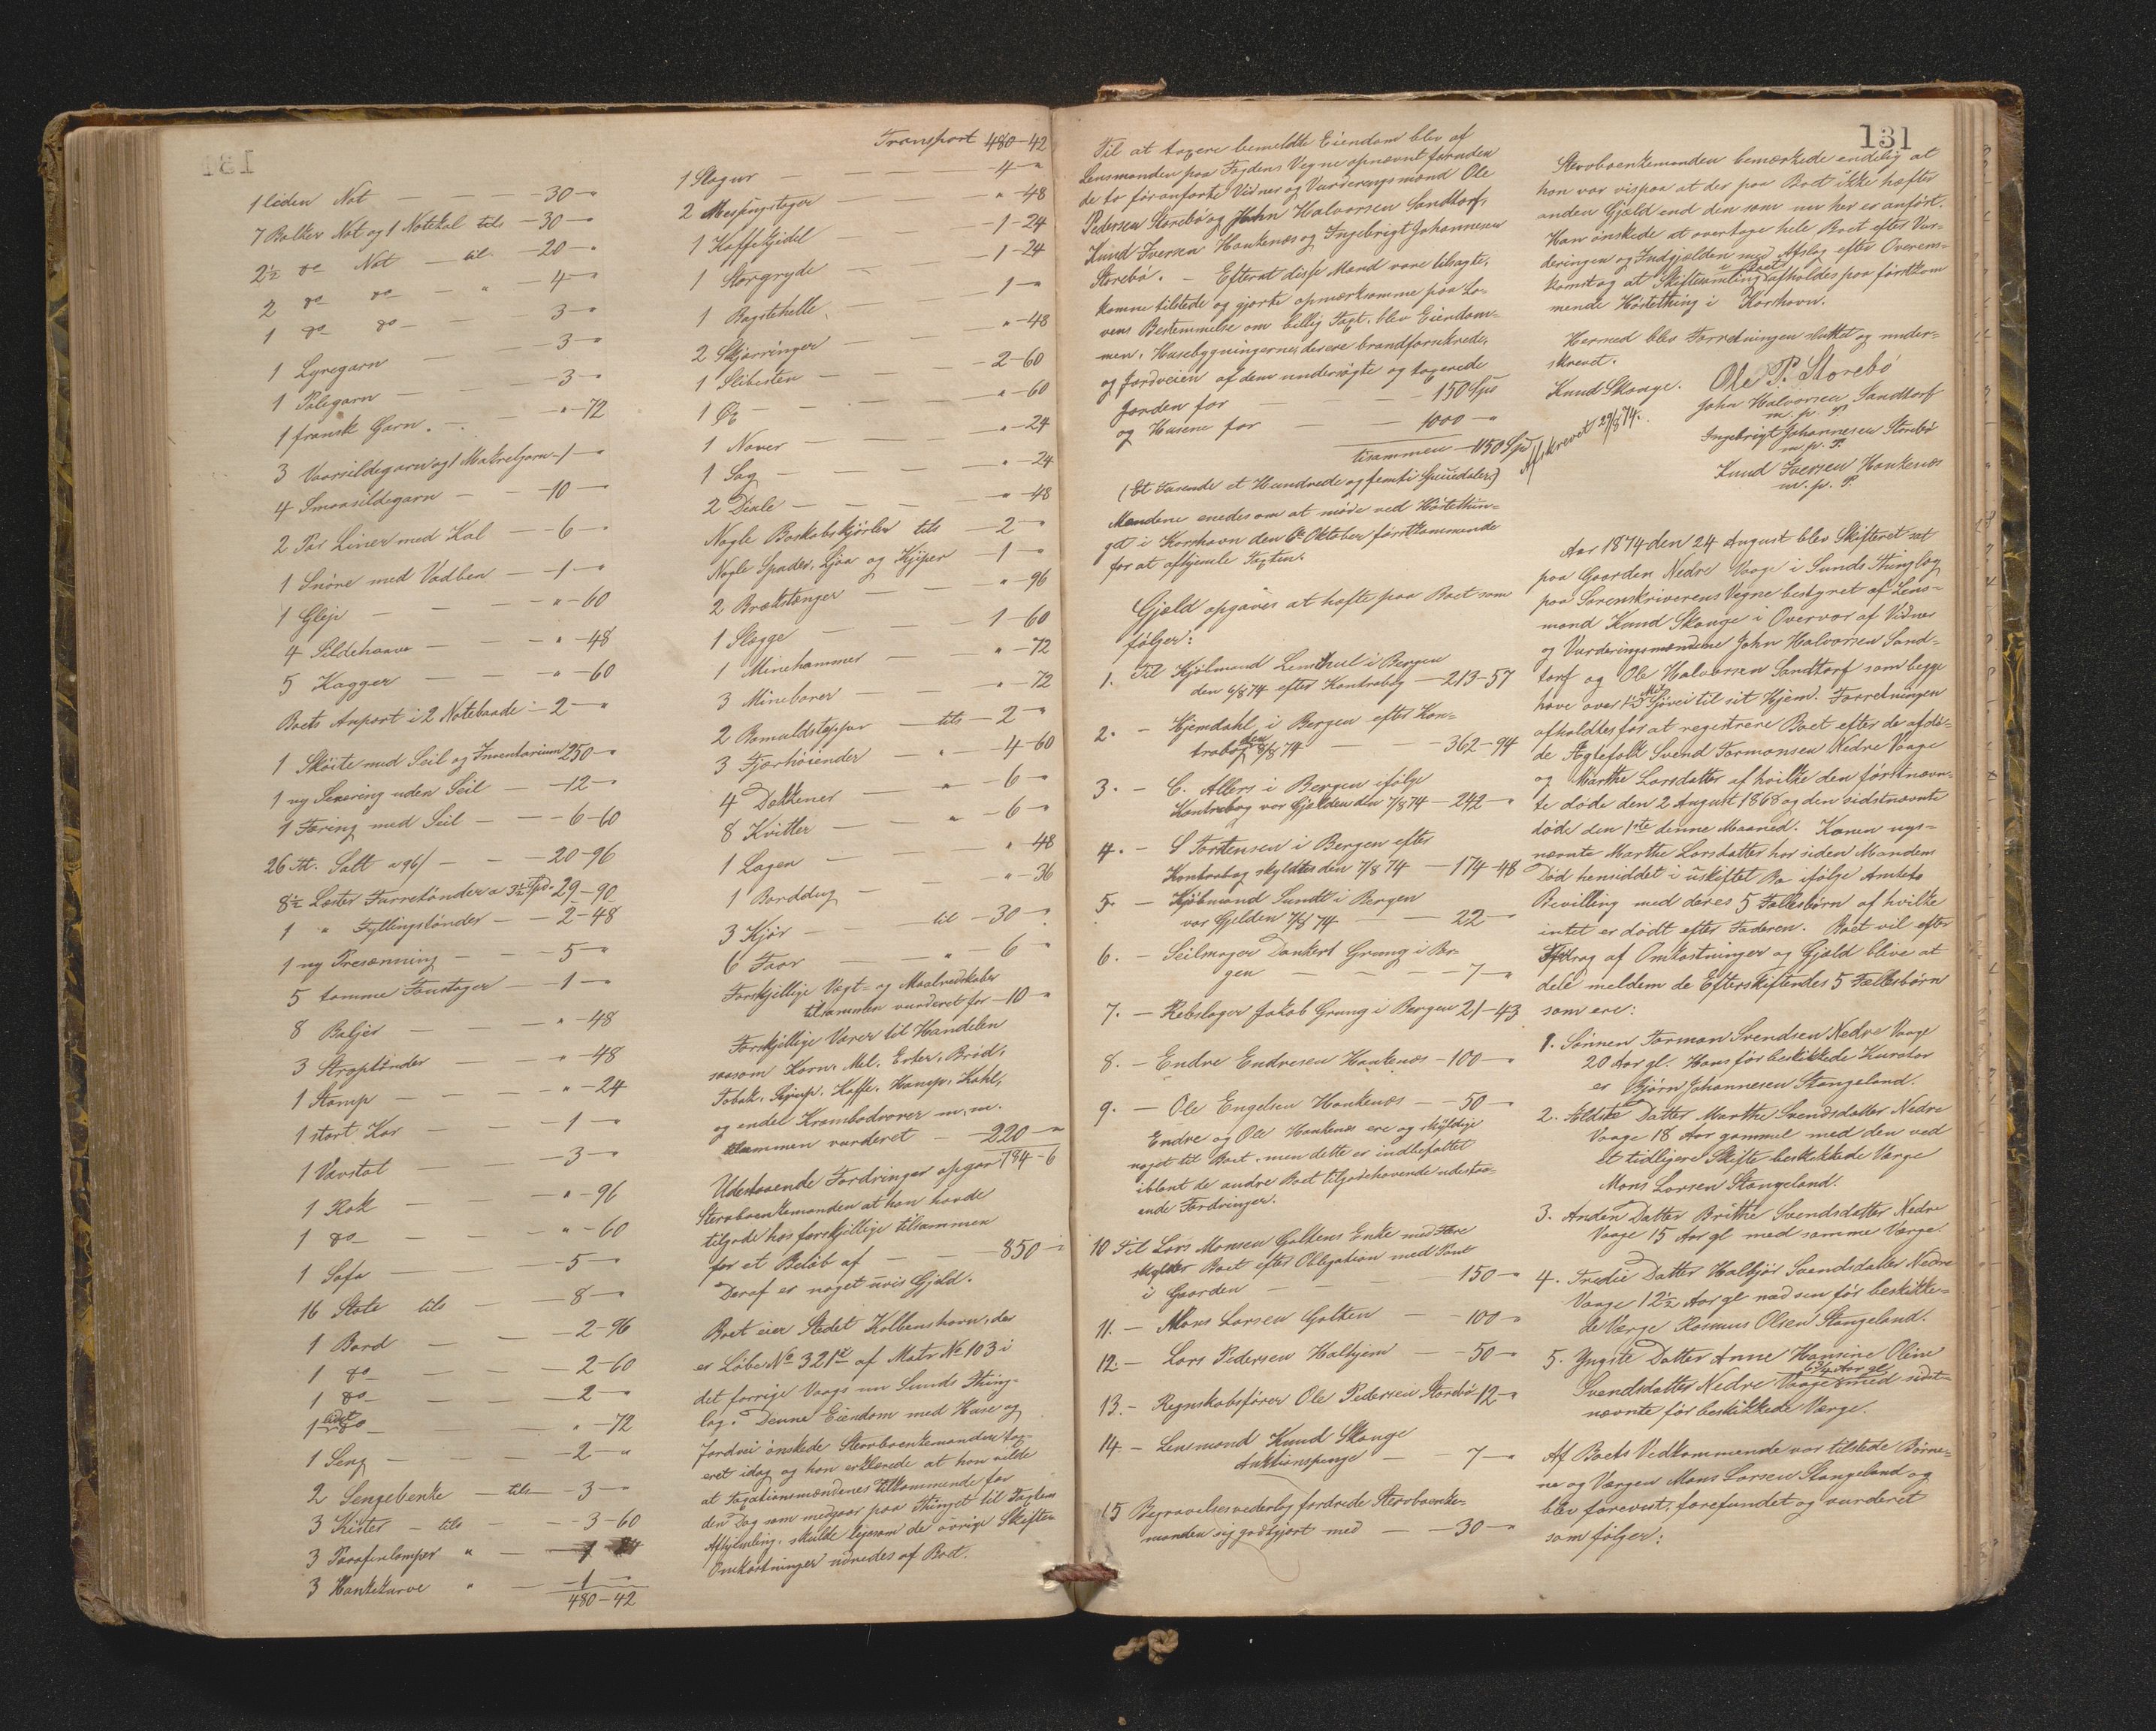 1 liden Not — — 30 — "
7 Bolker Not og 1 Notekal tils — 30 — "
2½ do Not — til — 20 — "
2 do do — " — 4 — "
1 do do — — 3 — "
1 Lyregarn — — 3 — "
1 Palegarn — — 3 — "
1 fransk Garn. — — " — 72
3 Vaarsildegarn og 1 Makrelgarn — 1 — "
4 Smaasildegarn — — 10 — "
2 Par Liner med Kal — — 6 — "
1 Snöre med Vadben — — 1 — "
1 Glep — — — " — 60
4 Sildehaave — — " — 48
5 Kagger — — — " — 60
Boets Anpart i 2 Notebaade — 2 — "
1 Sköite med Seil og Inventarium 250 — "
1 ny Sexæring uden Seil — 12 — "
1 Færing med Seil — — 6 — 60
26 Salt a 96/ — — 20 — 96
8½ Lester Furretönder a 3½ Spd. 29 — 90
1 " Fyllingstönder — — 2 — 48
1 ny Presenning — — 5 — "
5 tomme Foustager — — 1 — "
8 Baljer — — — " — 48
3 Straptönder — — " — 48
1 Stamp — — — " — 24
1 stort Kar — — 1 — "
1 Vævstol — — 3 — "
1 Rok — — " — 96
1 do — — — " — 60
1 Sofa — — 5 — "
16 Stole tils — — 8 — "
1 Bord — — — 2 — 96
1 do — — — 2 — 60
1 do — — — 2 — "
1 lidet do — — " — 72
1 Seng — — — 2 — "
2 Sengebenke — tils — 3 — "
3 Kister — tils — — 3 — 60
3 Parafinlamper " — — 1
3 Hankekurve " — — 1 — "
480 — 42
Transport 480 — 42
1 Slagur — — — 4 — "
2 Messingstager — — " — 48
1 Kaffekjedel — — 1 — 24
1 Storgryde — — 1 — 24
1 Bagstehelle — — 1 — "
2 Skjærringer — — " — 48
1 Slibesten — — 2 — 60
1 Öx — — — " — 60
1 Naver — — — " — 24
1 Sag — — — " — 24
2 Dixle — — — " — 48
Nogle Boskabskjörler tils — 2 — "
Nogle Spader, Ljaa og Kjiper — 1 — "
2 Brækstænger — — " — 96
1 Slægge — — 1 — 60
1 Minehammer — — " — 72
3 Mineborer — — " — 72
2 Bomuldstæpper — tils — 2 — "
3 Fjærhöiender — " — 4 — 60
4 Dækkener — " — 6 — "
8 Kvitler — — " — 6 — "
1 Lagen — — " — 48
1 Borddug — — " — 36
3 Kjör — — til — 30 — "
6 Faar — — " — 6 — "
Forskjellige Vægt- og Maalredskaber
tilsammen vurderet for — 10 — "
Forskjellige Varer til Handelen
saasom Korn, Mel, Erter, Bröd,
Tobak, Sirup, Kaffe, Hamp, Kahl,
og endel Krambodvarer m. m.
tilsammen vurderet — 220 — "
794 — 6
Udestaaende Fordringer opgav
Stervboenkemanden at han havde
tilgode hos forskjellige tilsammen
for et Belöb af — — 850 — "
Deraf er noget uvis Gjæld.
Boet eier Stedet Kolbenshavn, der
er Löbe No 321 af Matr No 103 i
det forrige Vaags nu Sunds Thing-
lag. Denne Eiendom med Huse og
Jordvei önskede Stervboenkemanden tax-
eret idag og han erklærede at han vilde
at Taxationsmændenes Tilkommende for
den Dag som medgaar paa Thinget til Taxtens
Afhjemling, skulde ligesom de övrige Skifte-
Omkostninger udredes af Boet.
131
Til at taxere bemeldte Eiendom blev af
Lensmanden paa Fogdens Vegne opnævnt foruden
de to föranförte Vidner og Vurderingsmænd Ole
Pedersen Storebö og John Halvorsen Sandtorf,
Knud Iversen Haukenæs og Ingebrigt Johannesen
Storebö. — Efterat disse Mænd vare tilsagte,
komne tilstede og gjorte opmærksomme paa Lo-
vens Bestemmelse om billig Taxt, blev Eiendom-
men, Husebygningerne, der ere brandforsikrede,
og Jordveien af dem undersögte og taxerede
Jorden for — — 150 Spd
og Husene for — — 1000 — "
tilsammen — 1150 Spd
(Et Tusende et Hundrede og femti Speciedaler)
Mændene enedes om at möde ved Höstethin-
get i Korshavn den 6te Oktober förstkommende
for at afhjemle Taxten.
Gjæld opgaves at hæfte paa Boet som
fölger:
1. Til Kjöbmand i Bergen
den 6/8 74 efter Kontrabog — 213 — 57
2. — Hjemdahl i Bergen efter Kon-
trabog den 8/8 74 — — 362 — 94
3. — C. Allers i Bergen ifölge
Kontrabog var Gjælden den 7/8 74 — 242 — "
4. — S Torstensen i Bergen efter
Kontrabog skyldtes den 7/8 74 — 174 — 48
5. — Kjöbmand Sundt i Bergen
var Gjelden 7/8 74 — — 22 — "
6. — Seilmager Dankert Grung i Ber-
gen — — — 7 — "
7. — Rebslager Jakob Grung i Bergen 21 — 43
8. — Endre Endresen Haukenæs — 100 — "
9. — Ole Engelsen Haukenæs — — 50 — "
Endre og Ole Haukenæs ere og skyldige
noget til Boet, men dette er indbefattet
iblant de andre Boet tilgodehavende udestaa-
ende Fordringer.
10 Til Lars Monsen Galtens Enke med Flere
skylder Boet efter Obligation med Pant
i Gaarden — — 150 — "
11. — Mons Larsen Galten — — 100 — "
12. — Lars Pedersen Halhjem — — 50 — "
13. — Regnskabsförer Ole Pedersen Storebö — 12 — "
14. — Lensmand Knud Skauge
Auktionspenge — 7 — "
15 Begravelsesvederlag fordrede Stervboenke-
manden sig godtgjort med — — 30 — "
Stervboenkemanden bemærkede endelig at
han var vis paa at der paa Boet ikke hæfter
anden Gjæld end den som nu her er anfört.
Han önskede at overtage hele Boet efter Vur-
deringen og Indgjælden med Afslag efter Overens-
komst og at Skiftesamling i Boet afholdes paa förstkom
mende Höstething i Korshavn.
Hermed blev Forretningen sluttet og under-
skrevet.
Knud Skauge. Ole P. Storebö
John Halvorsen Sandtorf
m. p. P.
Ingebrigt Johannesen Storebö
m. p. P.
Knud Iversen Haukenæs
m. p. P.
Afskrevet 29/8 74.
Aar 1874 den 24 August blev Skifteret sat
paa Gaarden Nedre Vaage i Sunds Thinglag
paa Sorenskriverens Vegne bestyret af Lens-
mand Knud Skauge i Overvær af Vidner
og Vurderingsmændene John Halvorsen Sand-
torf og Ole Halvorsen Sandtorf som begge
have over Mil Sjövei til sit Hjem. Forretningen
afholdtes for at registrere Boet efter de afdö-
de Ægtefolk Svend Tormonsen Nedre Vaage
og Marthe Larsdatter af hvilke den förstnævn-
te döde den 2 August 1868 og den sidstnævnte
döde den 1ste denne Maaned. Konen nys-
nævnte Marthe Larsdatter har siden Mandens
Död hensiddet i uskiftet Bo ifölge Amtets
Bevilling med deres 5 Fællesbörn af hvilke
intet er dödt efter Faderen. Boet vil efter
Fradrag af Omkostninger og Gjæld blive at
dele mellem de Efterskiftendes 5 Fællesbörn
som ere:
1. Sönnen Tormon Svendsen Nedre Vaage
20 Aar gl. Hans för beskikkede Kurator
er Björn Johannesen Stangeland.
2. Ældste Datter Marthe Svendsdatter Nedre
Vaage 18 Aar gammel med den ved
et tidligere Skifte beskikkede Værge
Mons Larsen Stangeland.
3. Anden Datter Brithe Svendsdatter Nedre
Vaage 15 Aar gl med samme Værge.
4. Tredie Datter Halbjör Svendsdatter Nedre
Vaage 12½ Aar gl med sin för beskikke-
de Værge Rasmus Olsen Stangeland.
5. Yngste Datter Anne Hansine Oline
Svendsdatter Nedre Vaage 6 3/4 Aar gl med sidst-
nævnte för beskikkede Værge.
Af Boets Vedkommende var tilstede Börne-
ne og Værgen Mons Larsen Stangeland og
blev forevist, forefundet og vurderet
som fölger: